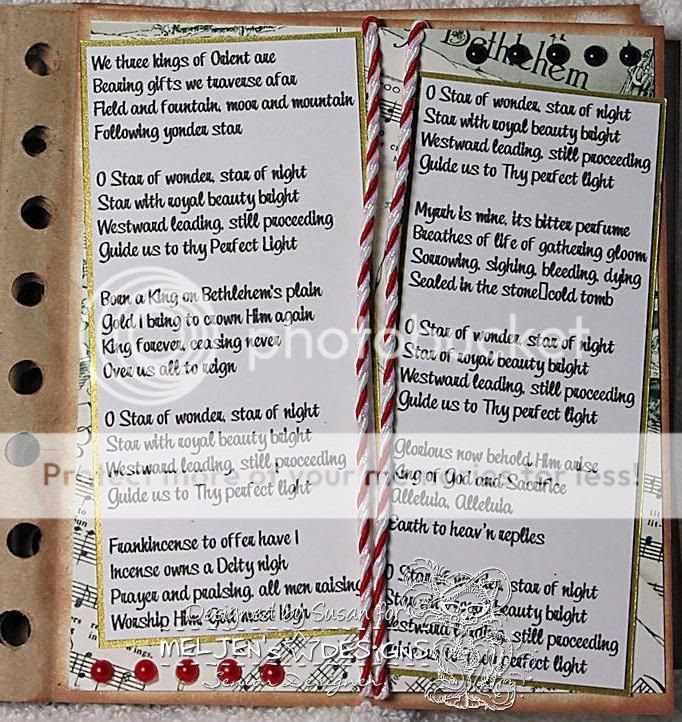 Bethlehem
We three kings of Orient are
Bearing gifts we traverse afar
Field and fountain, moor and mountain
Following yonder star
O Star of wonder, star of night
Star with royal beauty bright
Westward leading, still proceeding
Guide us to thy Perfect Light
Born a King on Bethlehem's plain
Gold I bring to crown Him again
King forever, ceasing never
Over us all to reign
O Star of wonder, star of night
Star with royal beauty bright
Westward leading, still proceeding
Guide us to Thy perfect light
Frankincense to offer have I
Incense owns a Deity nigh
Prayer and praising, all men raising
Worship Him God
O Star of wonder, star of night
Star with royal beauty bright
Westward leading, still proceeding
Guide us to Thy perfect light
Myrrh is mine, its bitter perfume
Breathes of life of gathering gloom
Sorrowing, sighing, bleeding, dying
Sealed in the stone▯cold tomb
O Star of wonder, star of night
Star of royal beauty bright
Westward leading, still proceeding
Guide us to Thy perfect light
Glorious now behold Him arise
King of God and Sacrifice
Alleluia, Alleluia
Earth to heav'n replies
O Star of wonder, star of night
Star royal beauty bright
Westward leading, still proceeding
us to Thy perfect light
photobucket
Protect more of your memories for less!
Designed by Susan for
MELJEN'S DESIGNS
Senior Designer